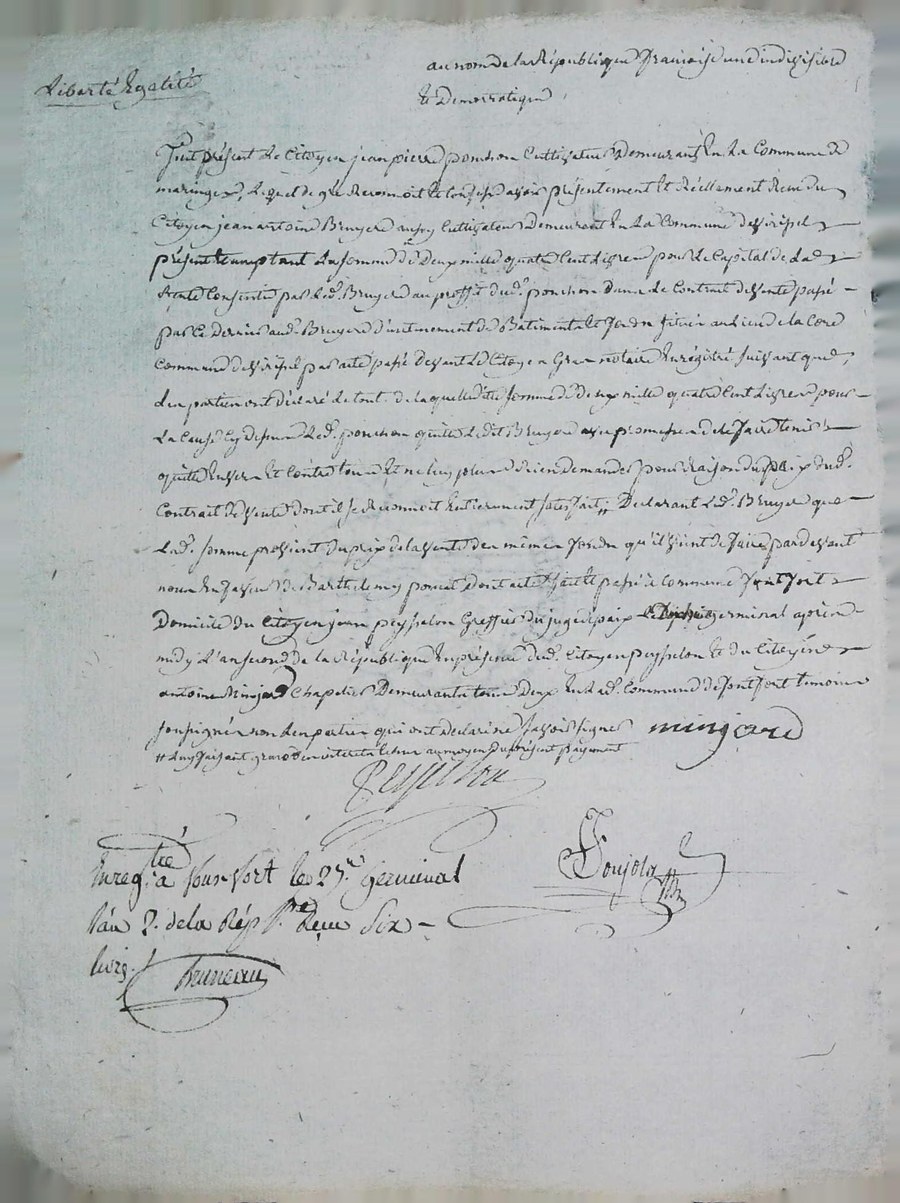 Liberté Egalité
au nom de la République françoise une indivisible
et Democratique
fut présent le Citoyen jean pierre ponchon Cultivateur Demeurant En La Commune de
maringes, Lequel de gré Reconnoit et Confesse avoir présentement et Réellement Receu du
Citoyen jean antoine Bruyere aussy Cultivateur Demeurant En La Commune de
présent acceptant La somme de Deux mille quatre Cent Livres pour Le Capital de La
Rente Consentie par Led. Bruyere au proffit dud. ponchon Dans Le Contrat de vente passé
par Ce Dernier aud. Bruyere d'un tenement de Batiments et fonds situés au Lieu de la
Commune de par acte passé Devant Le Citoyen notaire Enregistré suivant que
Les parties ont déclaré Le tout de la quelle ditte somme de deux mille quatre Cent Livres pour
La Cause Cy dessus Led. ponchon quitte Ledit Bruyere avec promesse de Le faire tenir
quitte Envers Et Contre tous Et ne luy plus Rien Demander pour Raison du prix dud.
Contrat De vente dont il se Reconnoit Entierement satisfait, Declarant Led. Bruyere que
Lad. somme provient Du prix de la vente des mêmes fonds qu'il vient de faire par devant
nous En faveur de Barthelemy poncet Dont acte fait et passé à Commune font fort
Domicile du Citoyen jean peysselon Greffier du juge de paix germinal après
midy L'an second de la République En présence dud. Citoyen peysselon Et du Citoyen
antoine Minjard Chapelier Demeurants tous Deux En Lad. Commune de font fort temoins
soussignés non Les parties qui ont declaré ne savoir signer minjard
au moyen du présent payement
Peysselon
Enreg.tré à fonsfort le 27. germinal
l'an 2. de la Rép. f. Reçu Six
livres
Bruneau